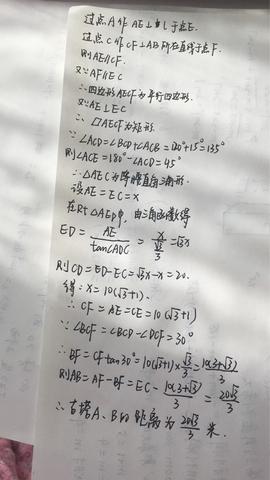 过点A作AE⊥l于点E.
过点C作CF⊥AB所在直线于点F.
则AE∥CF.
又∵AF∥EC
∴四边形AECF为平行四边形.
又∵AE⊥EC
∴ ▱AECF为矩形.
∵∠ACD=∠BCD+∠ACB=120°+15°=135°
则∠ACE=180°-∠ACD=45°
∴△AEC为等腰直角三角形.
设AE=EC=x
在Rt△AED中,由三角函数得
ED = AE/tan∠ADC = x/(√3/3) = √3x
则CD=ED-EC=√3x-x=20.
得:x=10(√3+1).
∴CF=AE=CE=10(√3+1)
∵∠BCF=∠BCD-∠DCF=30°
∴BF=CF tan30°=10(√3+1)×√3/3=10(3+√3)/3
则AB=AF-BF=EC-10(3+√3)/3=20√3/3
∴古塔A、B的距离为20√3/3米.